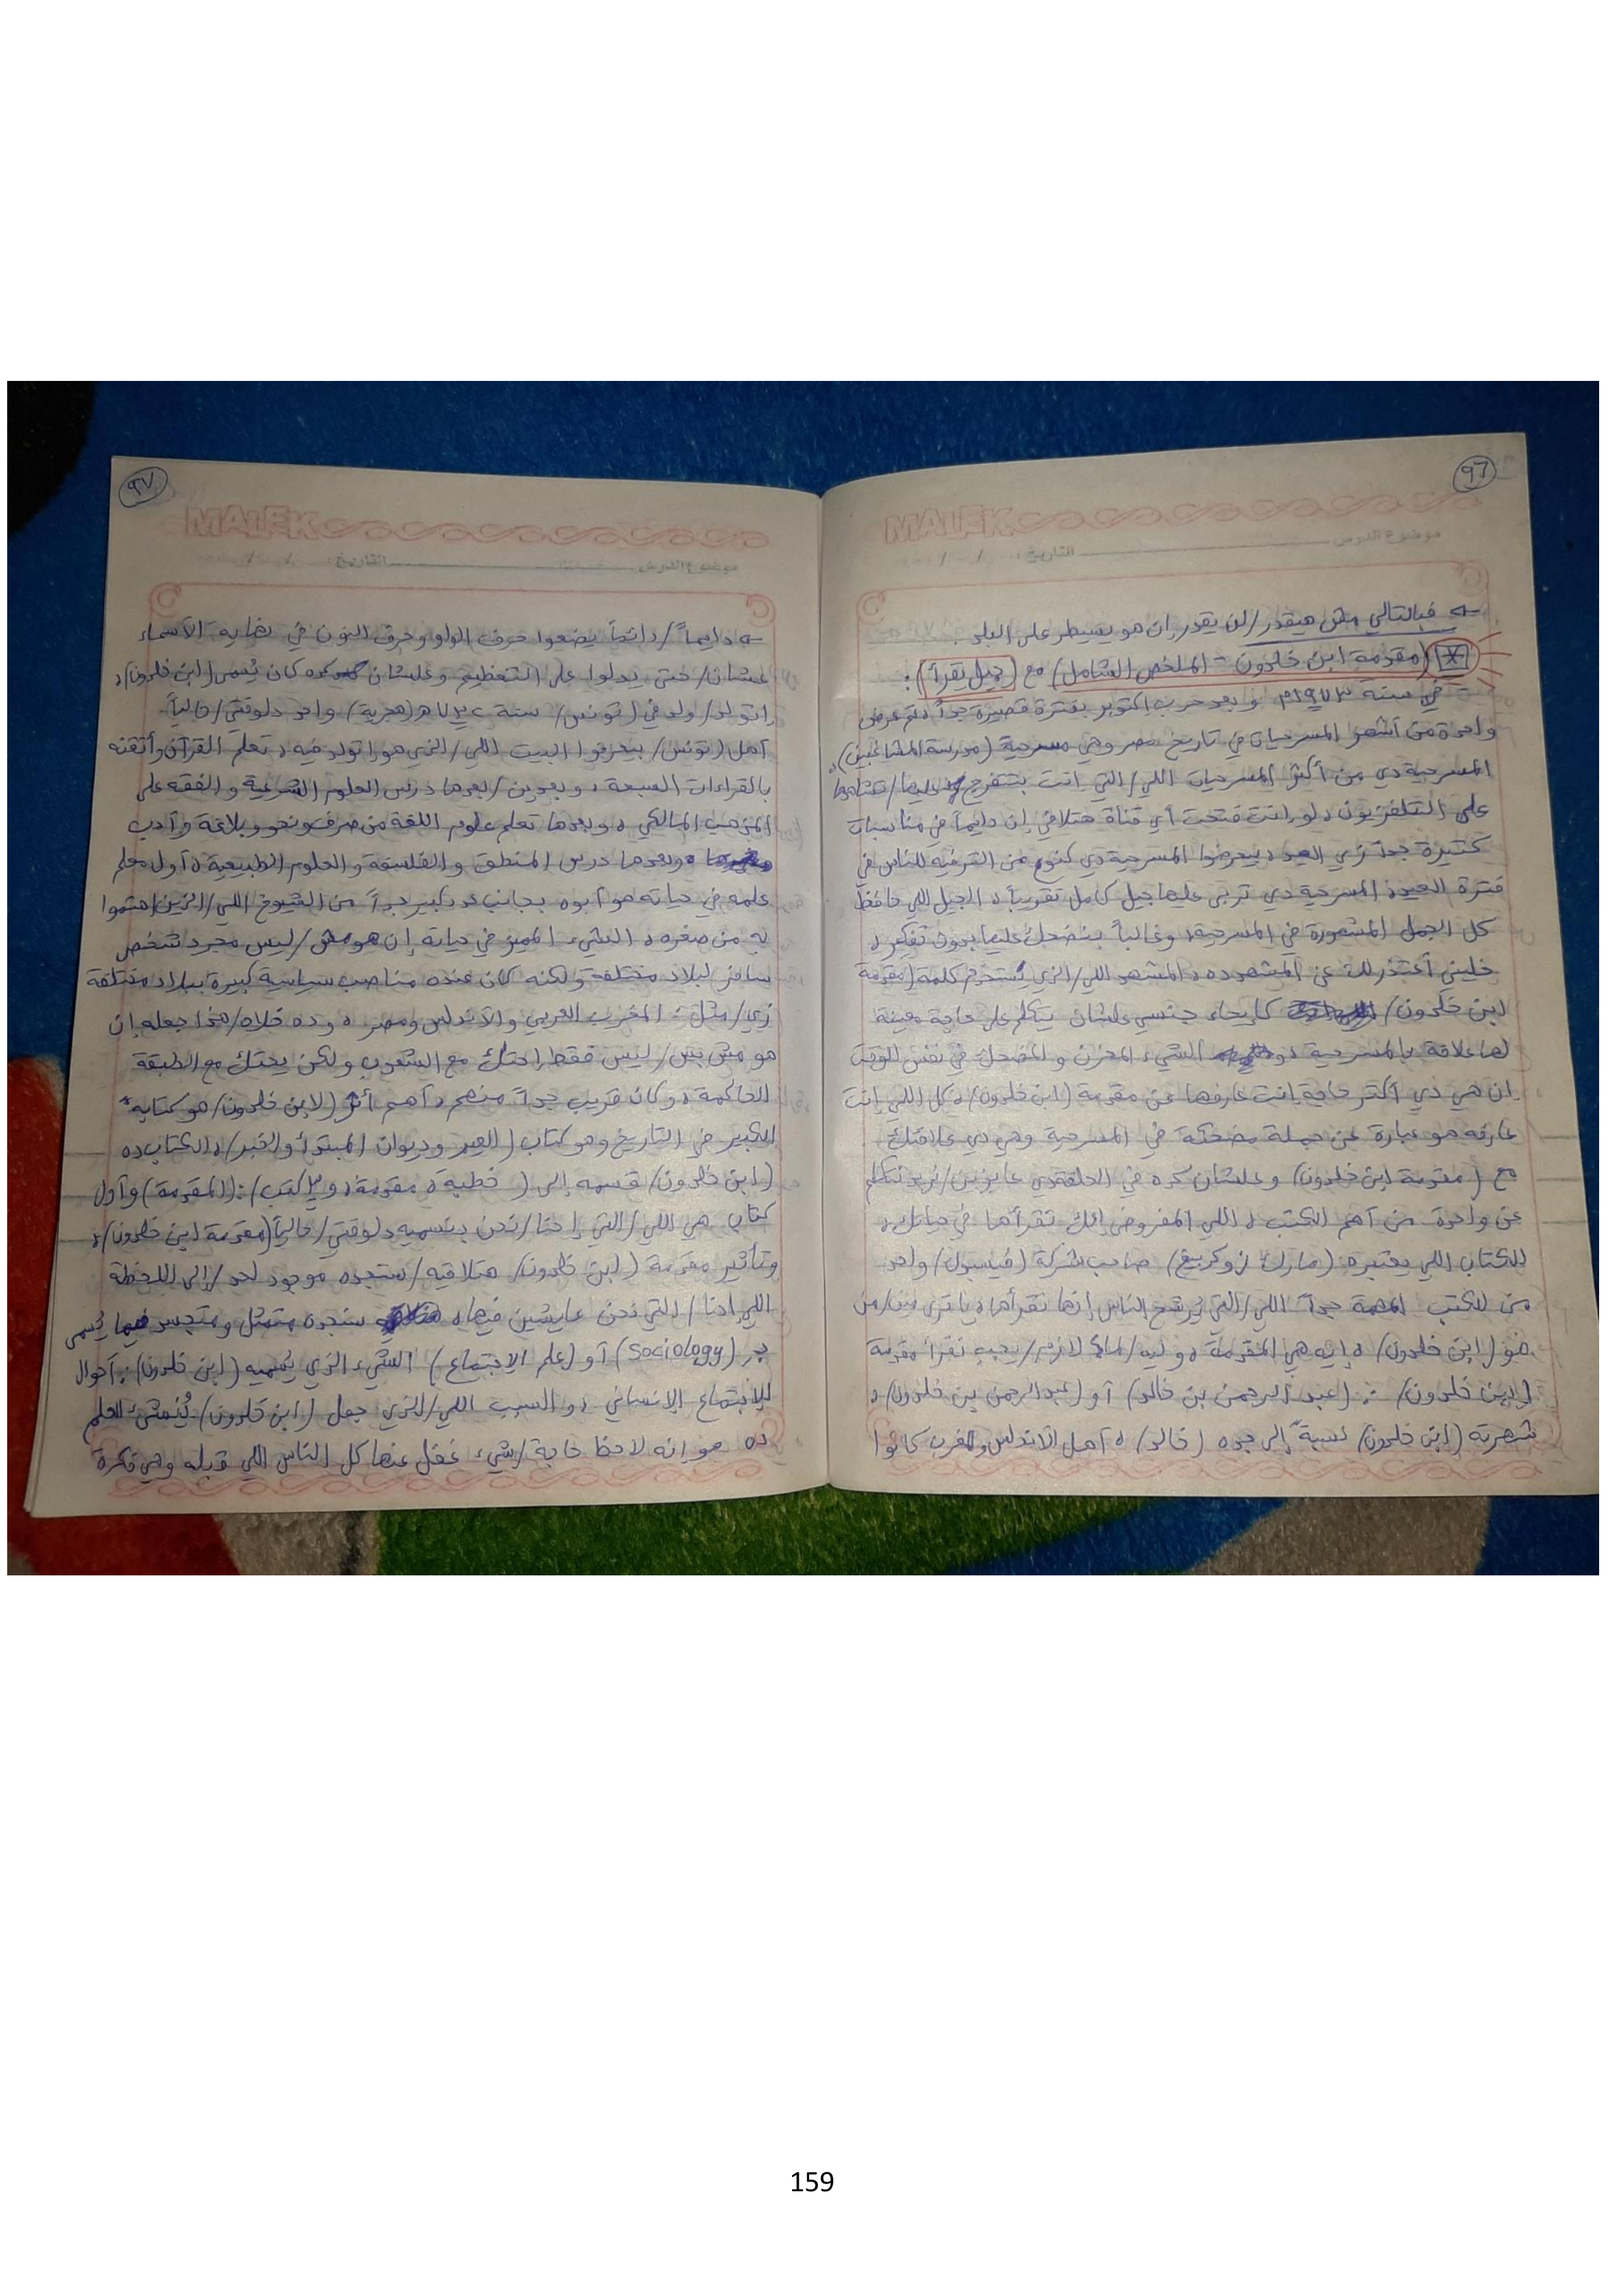 ٩٦
MALEK
موضوع الدرس التاريخ: / /
← فبالتالي مش هيقدر/لن يقدر إن هو يسيطر على البلد.
* (مقدمة ابن خلدون - الملخص الشامل) مع (جيل يقرأ):
في سنة ١٩٧٣م وبعد حرب أكتوبر بفترة قصيرة جداً، تم عرض
واحدة من أشهر المسرحيات في تاريخ مصر وهي مسرحية (مدرسة المشاغبين)،
المسرحية دي من أكثر المسرحيات اللي/التي انت بتتفرج عليها/تشاهدها
على التلفزيون، لو انت فتحت أي قناة هتلاقي إن دايماً في مناسبات
كتيرة جداً زي العيد، بيعرضوا المسرحية دي كنوع من الترفيه للناس في
فترة العيد، المسرحية دي تربى عليها جيل كامل تقريباً، الجيل اللي حافظ
كل الجمل المشهورة في المسرحية، وغالباً بنضحك عليها بدون تفكير،
خليني أعتذر لك عن المشهد ده، المشهد اللي/الذي يُستخدم كلمة (مقدمة
ابن خلدون) كإيحاء جنسي علشان يتكلم على حاجة معينة
لها علاقة بالمسرحية، الشيء المحزن والمضحك في نفس الوقت
إن هي دي أكتر حاجة انت عارفها عن مقدمة (ابن خلدون)، كل اللي انت
عارفه هو عبارة عن جملة مضحكة في المسرحية وهي دي علاقتك
مع (مقدمة ابن خلدون) وعلشان كده في الحلقة دي عايزين/نريد نتكلم
عن واحدة من أهم الكتب، اللي المفروض إنك تقرأها في حياتك،
الكتاب اللي يعتبره (مارك زوكربيرغ) صاحب شركة (فيسبوك) واحد
من الكتب المهمة جداً اللي/التي يُرشح الناس إنها تقرأها، يا ترى مين/من
هو (ابن خلدون)، إيه هي المقدمة، وليه/لماذا لازم/يجب نقرأ مقدمة
(ابن خلدون): (عبد الرحمن بن خالد) أو (عبد الرحمن بن خلدون)،
شهرته (ابن خلدون) نسبةً إلى جده (خالد)، أهل الأندلس والمغرب كانوا
٩٧
MALEK
موضوع الدرس التاريخ: / /
← دايماً/دائماً يضعوا حرف الواو وحرف النون في نهاية الأسماء
علشان/حتى يدلوا على التعظيم وعلشان كده كان يُسمى (ابن خلدون)،
اتولد/ولد في (تونس) سنة ٧٣٢هـ (هجرية) واحد دلوقتي/حالياً
أهل (تونس) بيعرفوا البيت اللي/الذي هو اتولد فيه، تعلم القرآن وأتقنه
بالقراءات السبعة، وبعدين/بعدها درس العلوم الشرعية والفقه على
المذهب المالكي، وبعدها تعلم علوم اللغة من صرف ونحو وبلاغة وأدب
وبعدها درس المنطق والفلسفة والعلوم الطبيعية، أول معلم
علمه في حياته هو أبوه بجانب عدد كبير جداً من الشيوخ اللي/الذين اهتموا
به من صغره، الشيء المميز في حياته إن هو مش/ليس مجرد شخص
سافر لبلاد مختلفة ولكنه كان عنده مناصب سياسية كبيرة ببلاد مختلفة
زي/مثل: المغرب العربي والأندلس ومصر، وده خلاه/هذا جعله إن
هو مش بس/ليس فقط احتك مع الشعوب ولكن يحتك مع الطبقة
الحاكمة، وكان قريب جداً منهم، أهم أثر (لابن خلدون) هو كتابه
الكبير في التاريخ وهو كتاب (العبر وديوان المبتدأ والخبر)، الكتاب ده
(ابن خلدون) قسمه إلى (خطبة، مقدمة، و٣ كتب): (المقدمة) وأول
كتاب هي اللي/التي إحنا/نحن بنسميه دلوقتي/حالياً (مقدمة ابن خلدون)،
وتأثير مقدمة (ابن خلدون) هتلاقيه/ستجده موجود لحد/إلى اللحظة
اللي إحنا/التي نحن عايشين فيها، ستجده متمثل ومتجسد فيما يُسمى
بـ (Sociology) أو (علم الاجتماع) الشيء الذي يُسميه (ابن خلدون): أحوال
الاجتماع الإنساني، والسبب اللي/الذي جعل (ابن خلدون) يُنشئ العلم
ده هو إنه لاحظ حاجة/شيء غفل عنها كل الناس اللي قبله وهي فكرة
159